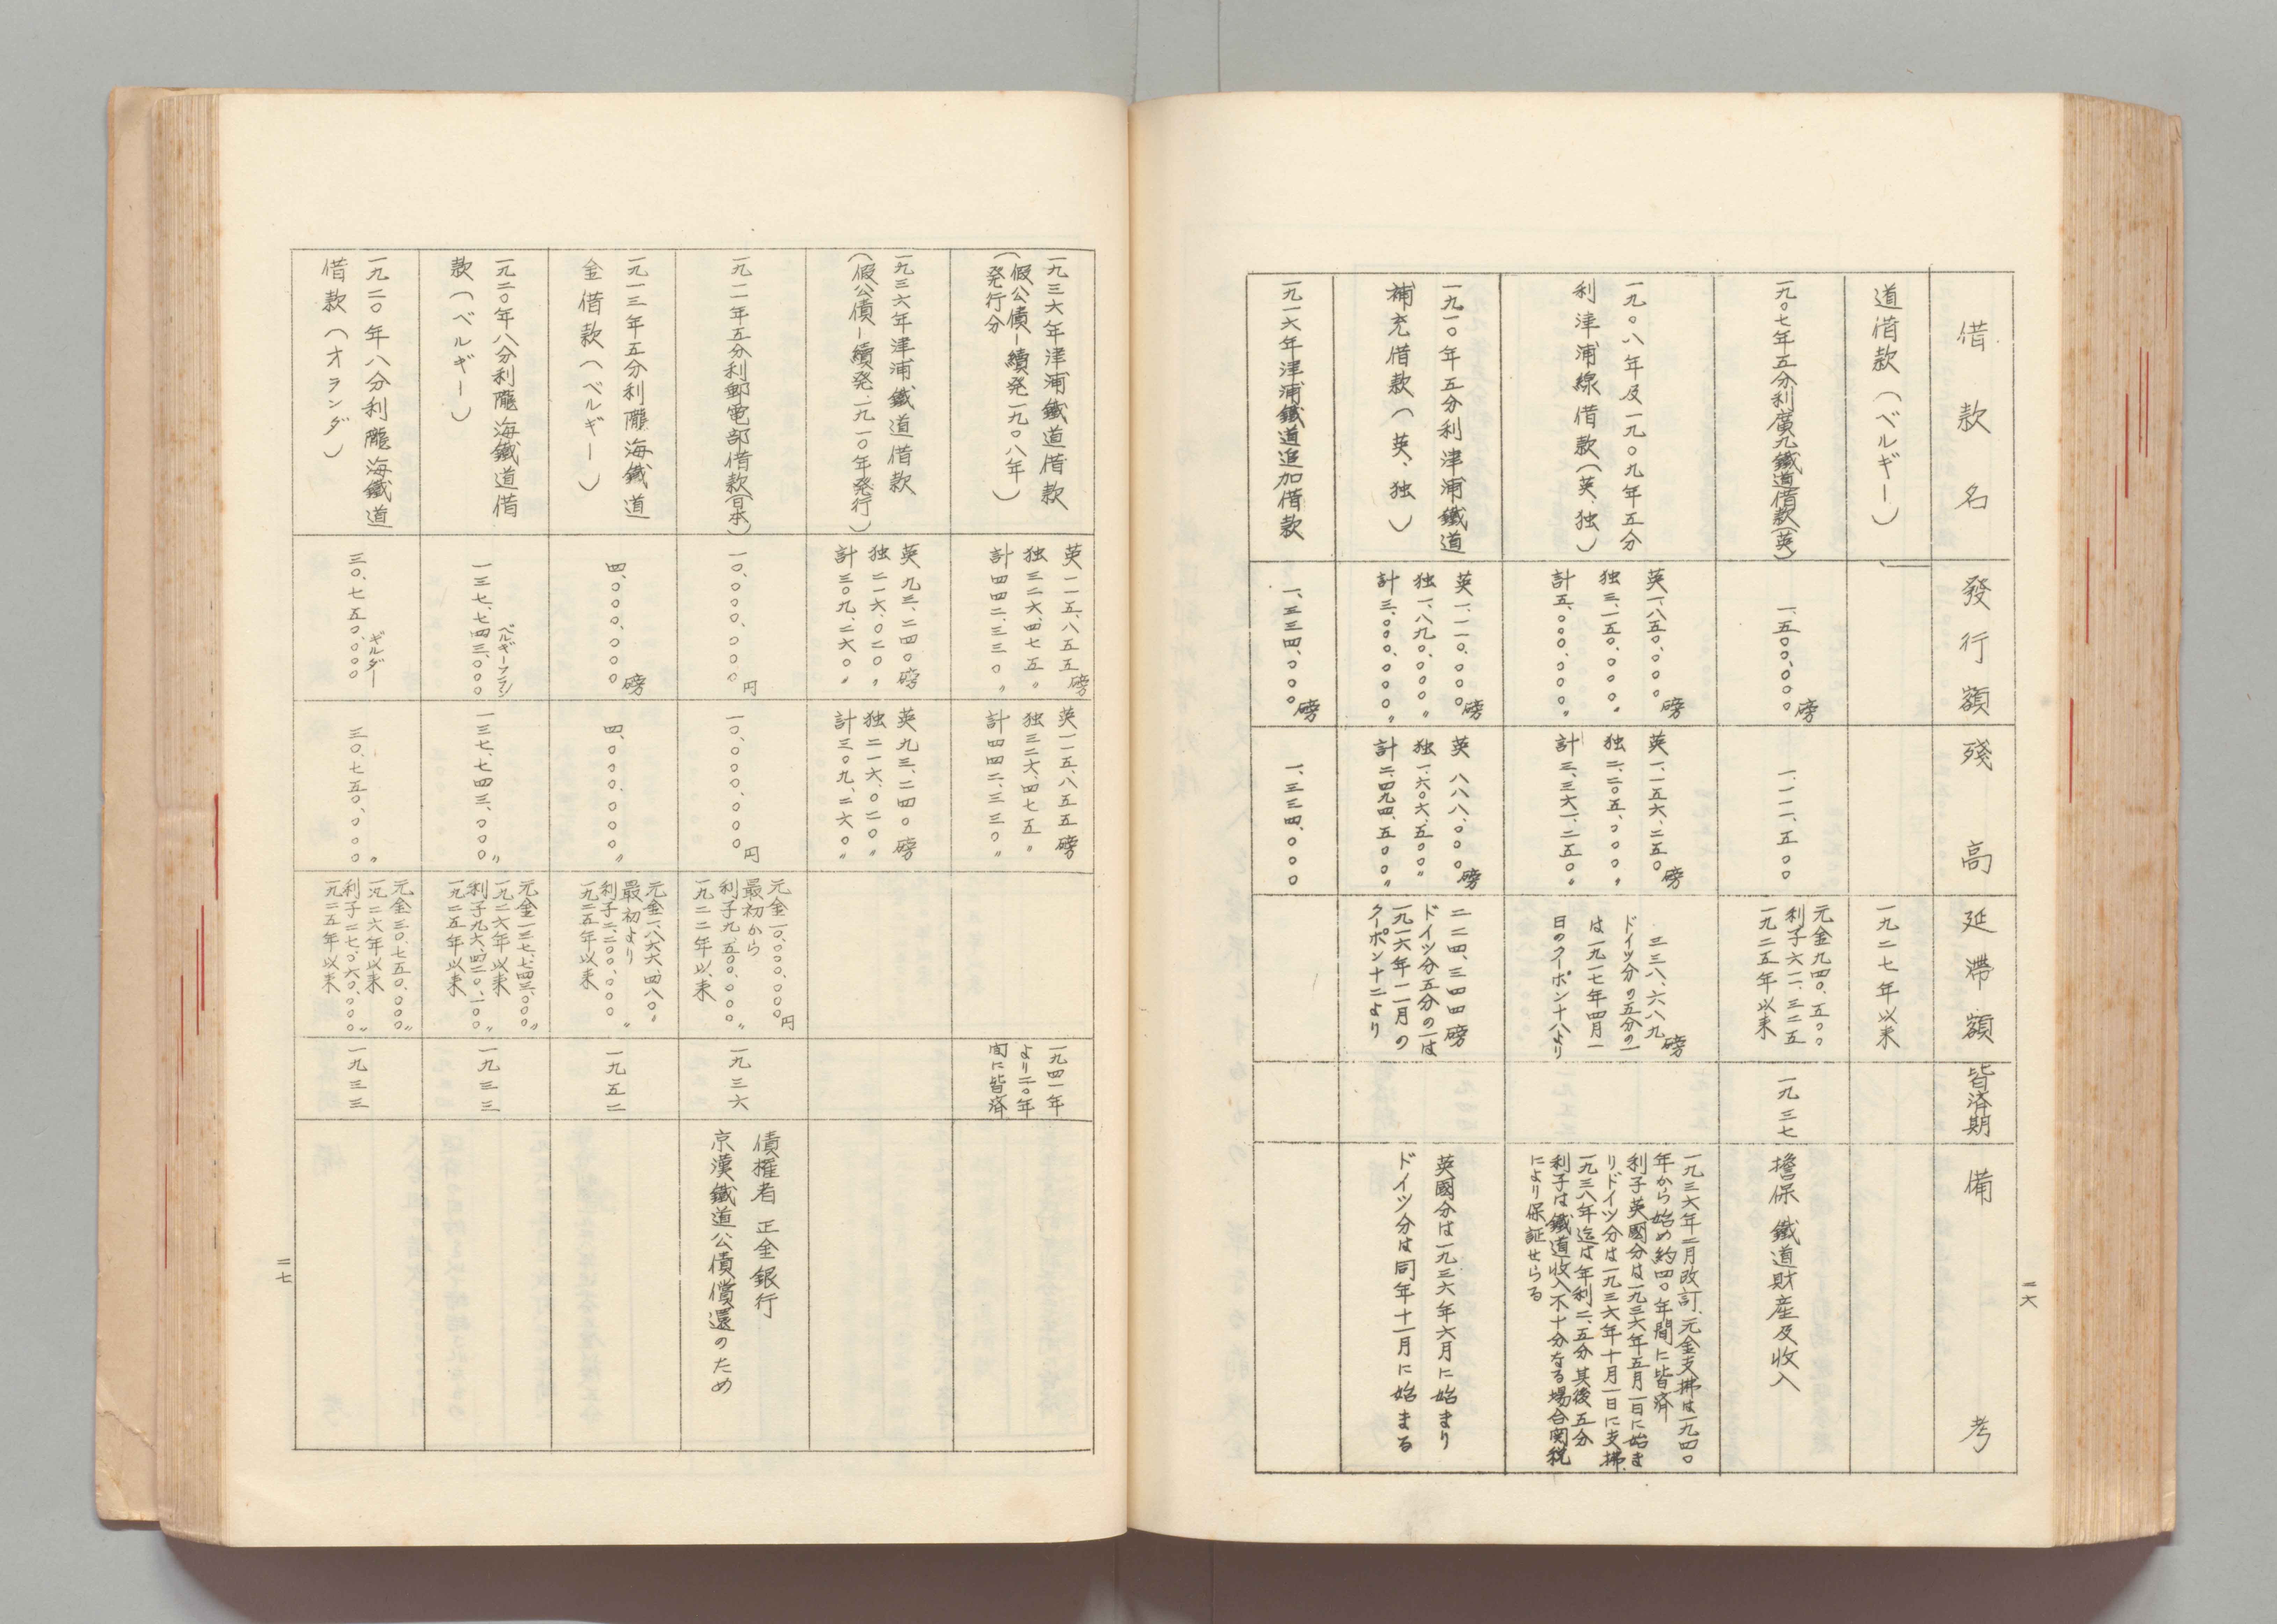 借款名
發行額
殘高
延滯額
皆済期
備考
道借款(ベルギー)
一九二七年以来
一九〇七年五分利廣九鐵道借款(英)
一、五〇〇、〇〇〇磅
一、一一一、五〇〇
元金九四〇、五〇〇
利子六一一、三二五
一九二五年以来
一九三七
擔保 鐵道財産及收入
一九〇八年及一九〇九年五分
利津浦線借款(英、独)
英一、八五〇、〇〇〇磅
独三、一五〇、〇〇〇〃
計五、〇〇〇、〇〇〇〃
英一、一五六、二五〇磅
独二、二〇五、〇〇〇〃
計三、三六一、二五〇〃
三三八、六八九磅
ドイツ分の五分の一
は一九一七年四月一
日のクーポン十八より
一九三六年二月改訂、元金支拂は一九四〇
年から始め約四〇年間に皆済
利子英國分は一九三六年五月一日に始ま
りドイツ分は一九三六年十月一日に支拂
一九三八年迄は年利二、五分其後五分
利子は鐵道收入不十分なる場合関税
により保証せらる
一九一〇年五分利津浦鐵道
補充借款(英、独)
英一、一一〇、〇〇〇磅
独一、八九〇、〇〇〇〃
計三、〇〇〇、〇〇〇〃
英 八八八、〇〇〇磅
独一、六〇六、五〇〇〃
計二、四九四、五〇〇〃
二二四、三四四磅
ドイツ分五分の一は
一九一六年一一月の
クーポン十二より
英國分は一九三六年六月に始まり
ドイツ分は同年十一月に始まる
一九一六年津浦鐵道追加借款
一、三三四、〇〇〇磅
一、三三四、〇〇〇
二六
一九三六年津浦鐵道借款
(假公債―續発一九〇八年
発行分)
英一一五、八五五磅
独三二六、四七五〃
計四四二、三三〇〃
英一一五、八五五磅
独三二六、四七五〃
計四四二、三三〇〃
一九四一年
より二〇年
間に皆済
一九三六年津浦鐵道借款
(假公債―續発一九一〇年発行)
英九三、二四〇磅
独二一六、〇二〇〃
計三〇九、二六〇〃
英九三、二四〇磅
独二一六、〇二〇〃
計三〇九、二六〇〃
一九一一年五分利郵電部借款(日本)
一〇、〇〇〇、〇〇〇円
一〇、〇〇〇、〇〇〇円
元金一〇、〇〇〇、〇〇〇円
最初から
利子九、五〇〇、〇〇〇〃
一九二二年以来
一九三六
債権者 正金銀行
京漢鐵道公債償還のため
一九一三年五分利隴海鐵道
金借款(ベルギー)
四、〇〇〇、〇〇〇磅
四、〇〇〇、〇〇〇〃
元金一、八六六、四八〇〃
最初より
利子二、二〇〇、〇〇〇〃
一九二五年以来
一九五二
一九二〇年八分利隴海鐵道借
款(ベルギー)
ベルギーフラン
一三七、七四三、〇〇〇
一三七、七四三、〇〇〇〃
元金一三七、七四三、〇〇〇〃
一九二六年以来
利子九六、四二〇、一〇〇〃
一九二五年以来
一九三三
一九二〇年八分利隴海鐵道
借款(オランダ)
ギルダー
三〇、七五〇、〇〇〇
三〇、七五〇、〇〇〇〃
元金三〇、七五〇、〇〇〇〃
一九二六年以来
利子二七、〇六〇、〇〇〇〃
一九二五年以来
一九三三
二七